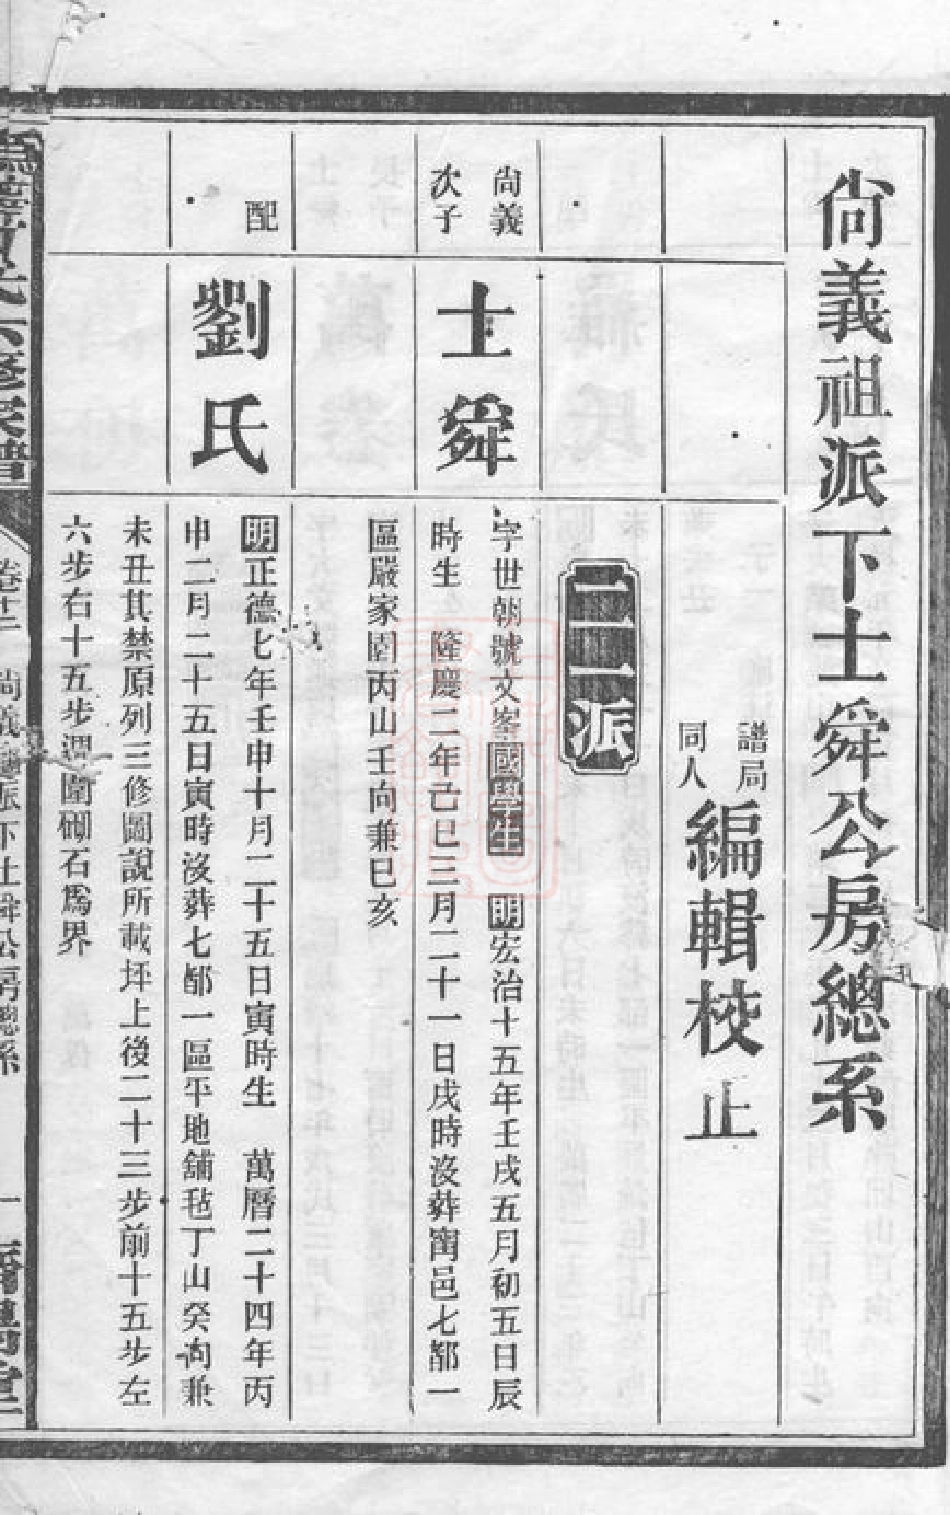 尙義祖派下士舜公房總系
譜局
同人
編輯校正
二三派
尙義
次子
士舜
字世朝號文峯國學生 明宏治十五年壬戌五月初五日辰
時生 隆慶二年己巳三月二十一日戌時沒葬甯邑七都一
區嚴家園丙山壬向兼巳亥
配
劉氏
明正德七年壬申十月二十五日寅時生 萬曆二十四年丙
申二月二十五日寅時沒葬七都一區平地舖毡丁山癸向兼
未丑其禁原列三修圖說所載坪上後二十三步前十五步左
六步右十五步週圍砌石爲界
氏六修家譜
卷十二 尙義祖派下士舜公房總系 一